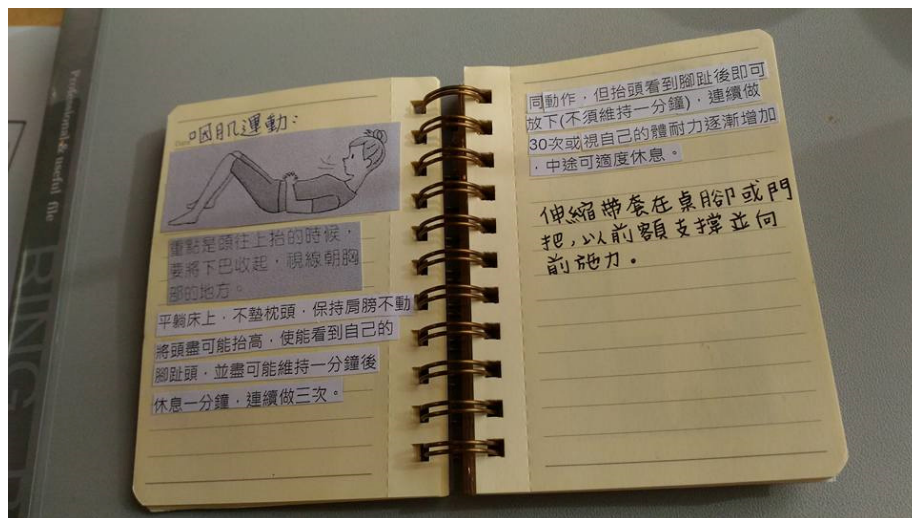 Professional & useful file
RING
咽肌運動:
重點是頭往上抬的時候，
要將下巴收起，視線朝胸
部的地方。
平躺床上，不墊枕頭，保持肩膀不動
將頭盡可能抬高，使能看到自己的
腳趾頭，並盡可能維持一分鐘後
休息一分鐘，連續做三次。
同動作，但抬頭看到腳趾後即可
放下(不須維持一分鐘)，連續做
30次或視自己的體耐力逐漸增加
，中途可適度休息。
伸縮帶套在桌腳或門
把，以前額支撐並向
前施力。